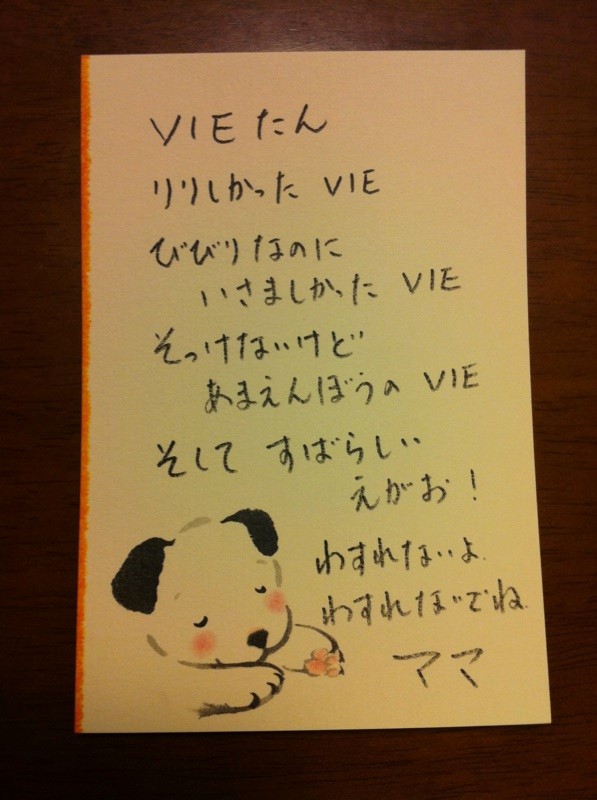 VIEたん
りりしかった VIE
びびりなのに
いさましかった VIE
そっけないけど
あまえんぼうの VIE
そして すばらしい
えがお!
わすれないよ.
わすれないでね.
ママ